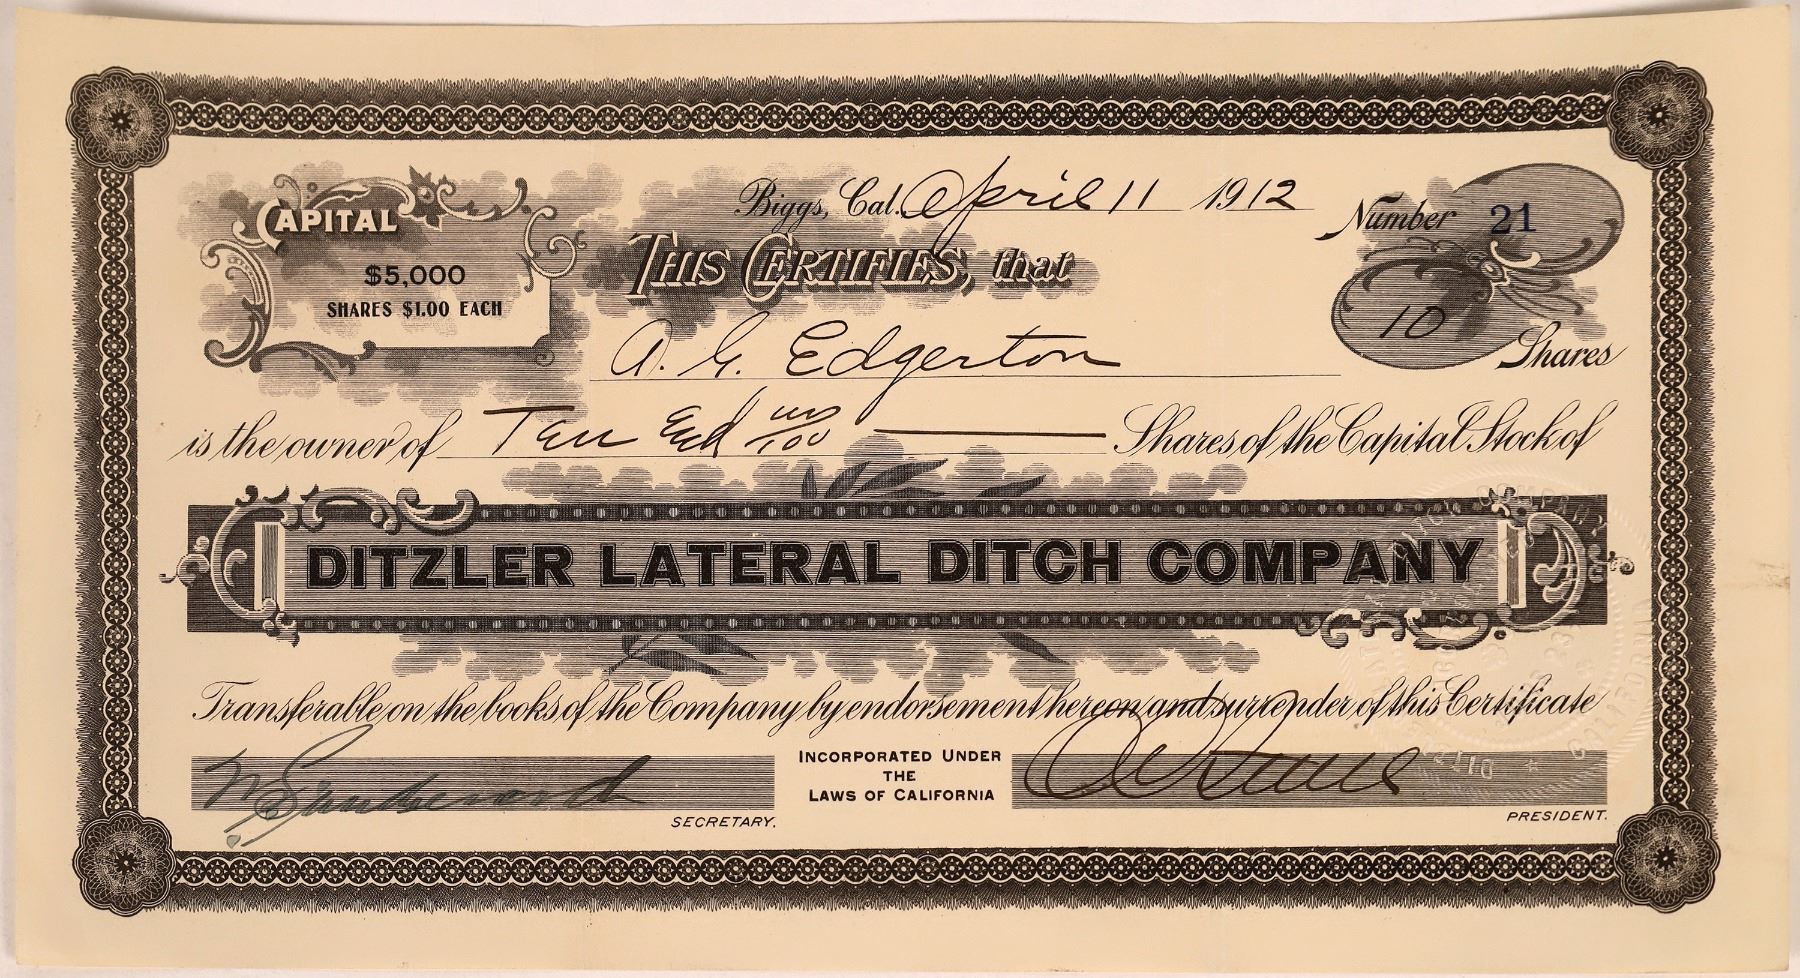 Biggs, Cal. April 11 1912
Number 21
CAPITAL
$5,000
SHARES $1.00 EACH
THIS CERTIFIES, that
10
Shares
A. G. Edgerton
is the owner of Ten no/100 Shares of the Capital Stock of
DITZLER LATERAL DITCH COMPANY
Transferable on the books of the Company by endorsement hereon and surrender of this Certificate
INCORPORATED UNDER
THE
LAWS OF CALIFORNIA
SECRETARY.
PRESIDENT.
CALIFORNIA